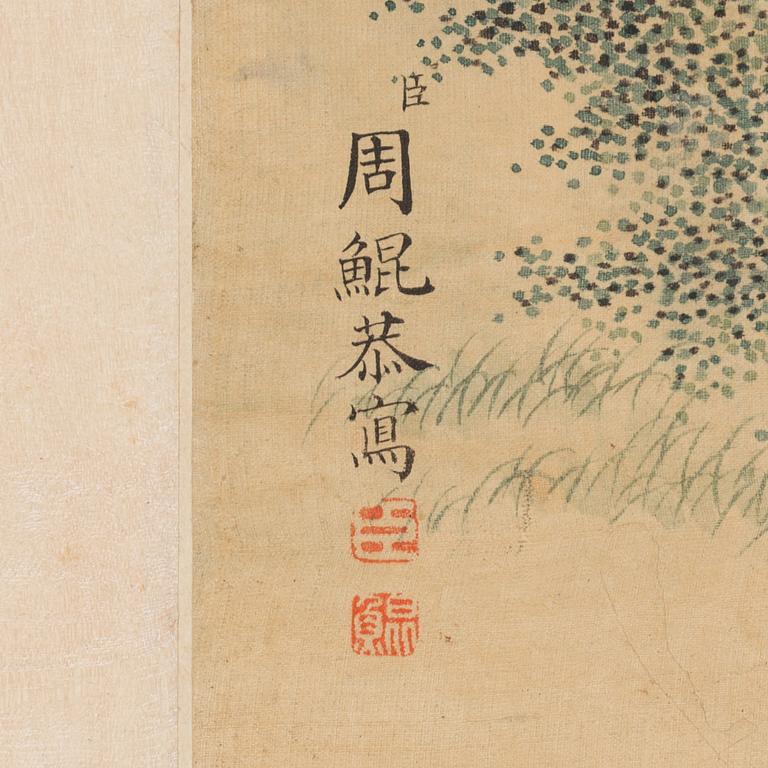 臣周鯤恭寫
臣